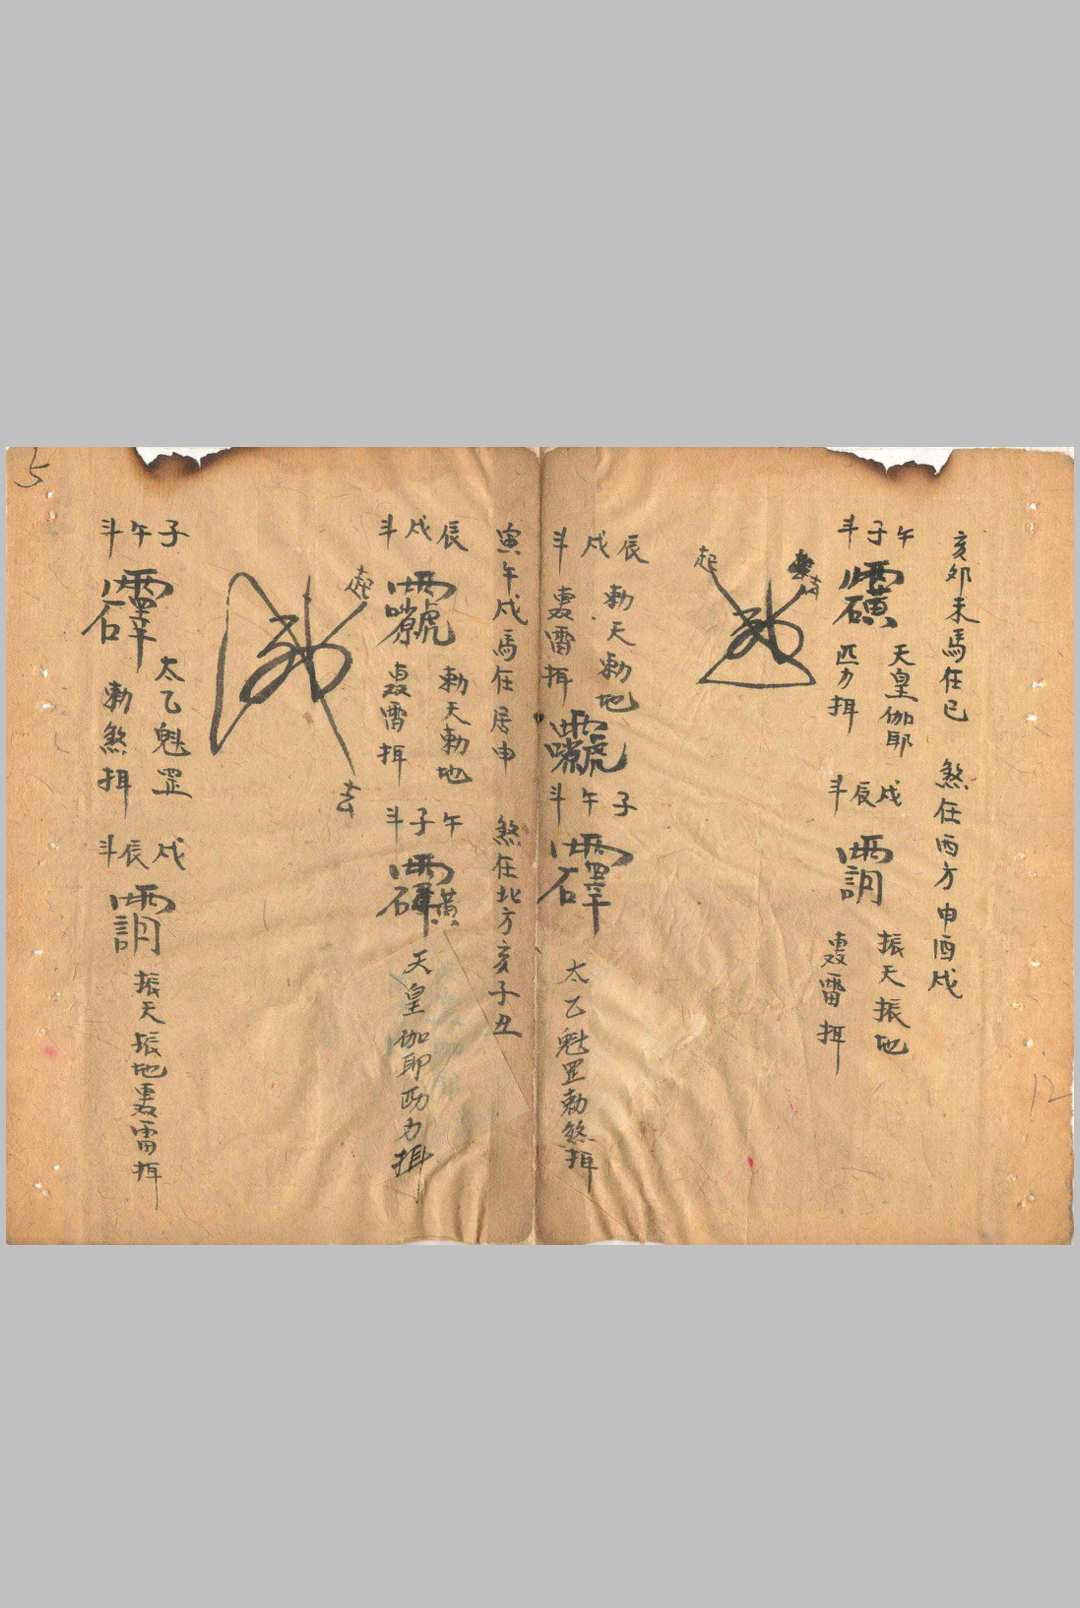 亥卯未馬在巳 煞在西方申酉戌
斗子午
天皇伽耶
匹力揖
斗辰戌
振天振地
轟雷揖
起
去
斗戌辰
勅天勅地
轟雷揖
斗午子
太乙魁罡勅煞揖
寅午戌馬在居申 煞在北方亥子丑
斗戌辰
勅天勅地
轟雷揖
斗子午
天皇伽耶匹力揖
起
去
斗午子
太乙魁罡
勅煞揖
斗辰戌
振天振地轟雷揖
5
12